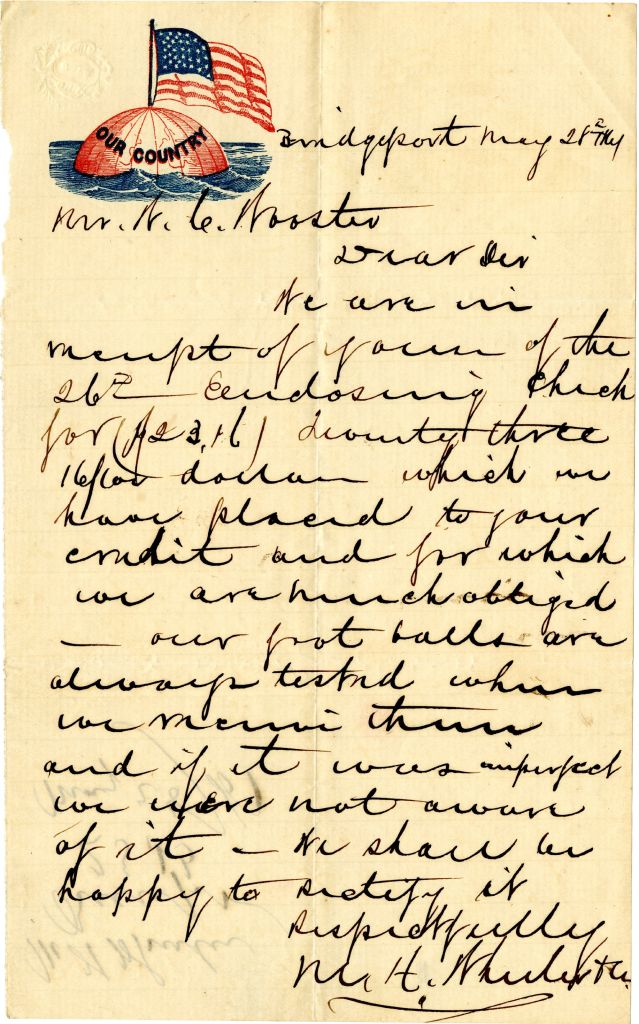 OUR COUNTRY
Bridgeport May 28th
Mr. N. C. Wooster
Dear Sir
We are in
receipt of yours of the
26th Enclosing Check
for ($23.16) Twenty three
16/100 dollars which we
have placed to your
credit and for which
we are much obliged
— our foot balls are
always tested when
we receive them
and if it was imperfect
we were not aware
of it — We shall be
happy to rectify it
Respectfully
M. H. Wheeler & Co.